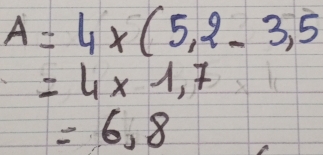 A = 4 × ( 5,2 - 3,5
= 4 × 1,7
= 6,8